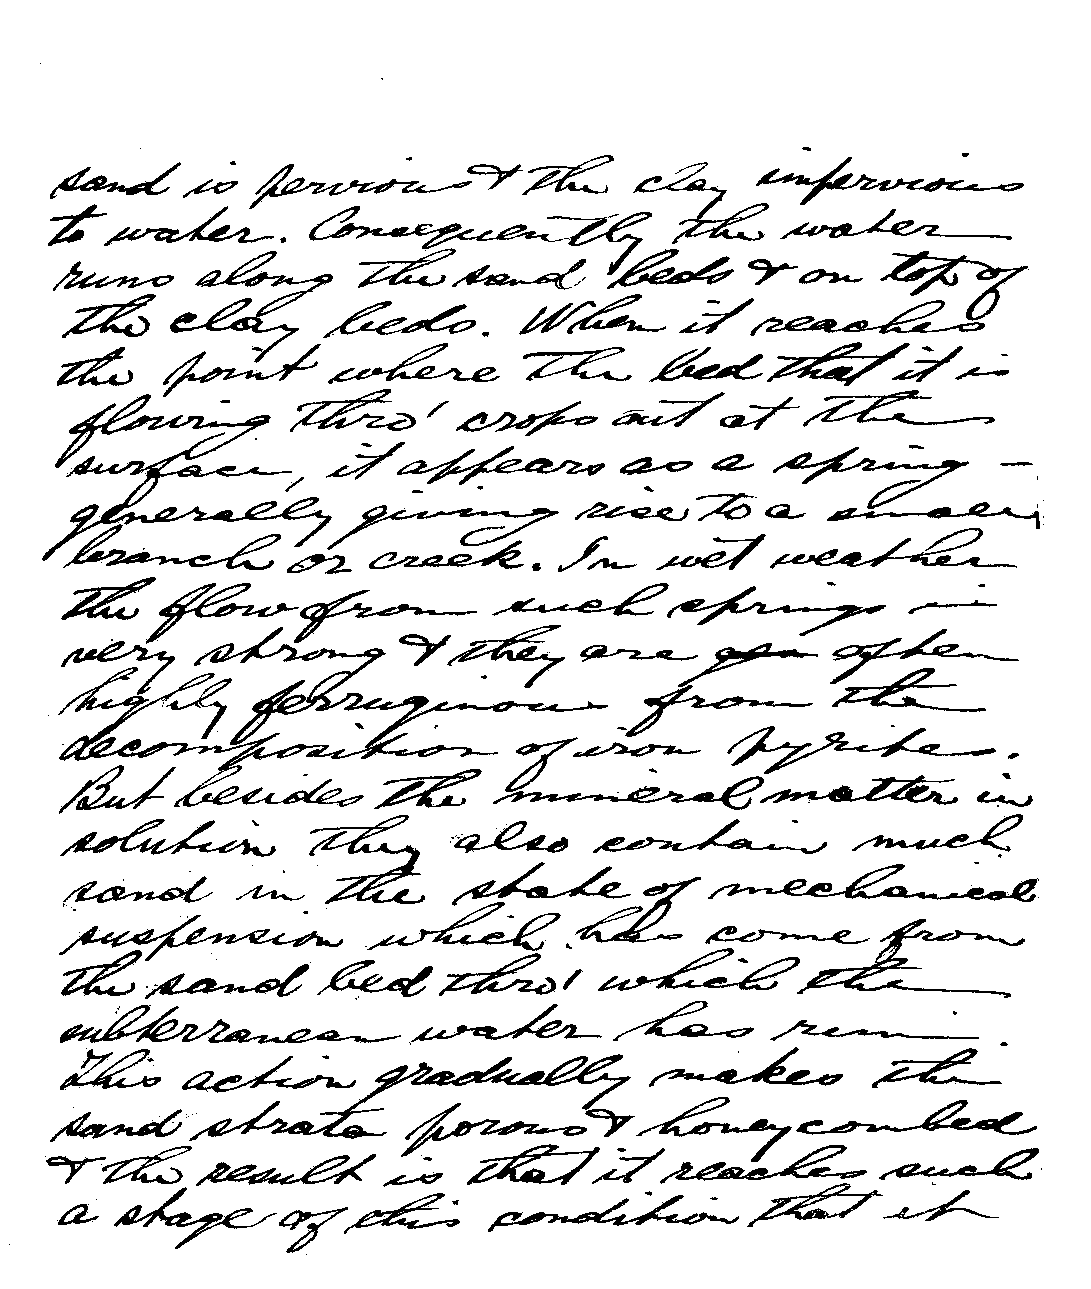 sand is pervious & the clay impervious
to water. Consequently the water
runs along the sand beds & on top of
the clay beds. When it reaches
the point where the bed that it is
flowing thro' crops out at the
surface, it appears as a spring —
generally giving rise to a small
branch or creek. In wet weather
the flow from such springs is
very strong & they are often
highly ferruginous from the
decomposition of iron pyrites.
But besides the mineral matter in
solution they also contain much
sand in the state of mechanical
suspension which has come from
the sand bed thro' which the
subterranean water has run.
This action gradually makes the
sand strata porous & honeycombed
& the result is that it reaches such
a stage of this condition that it